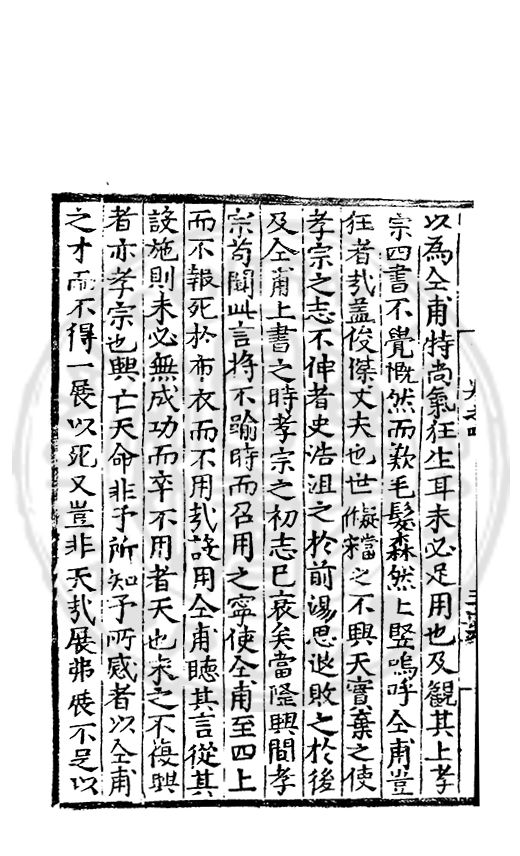 以為仝甫特尚氣狂生耳未必足用也及觀其上孝
宗四書不覺慨然而歎毛髮森然上竪嗚呼仝甫豈
狂者㢤葢俊傑丈夫也世儗當宋之不興天實棄之使
孝宗之志不伸者史浩沮之於前湯思退敗之於後
及仝甫上書之時孝宗之初志已衰矣當隆興間孝
宗茍聞此言將不踰時而召用之寧使仝甫至四上
而不報死於布衣而不用㢤設用仝甫聴其言從其
設施則未必無成功而卒不用者天也宋之不復興
者亦孝宗也興亡天命非予所知予所感者以仝甫
之才而不得一展以死又豈非天㢤展弗展不足以